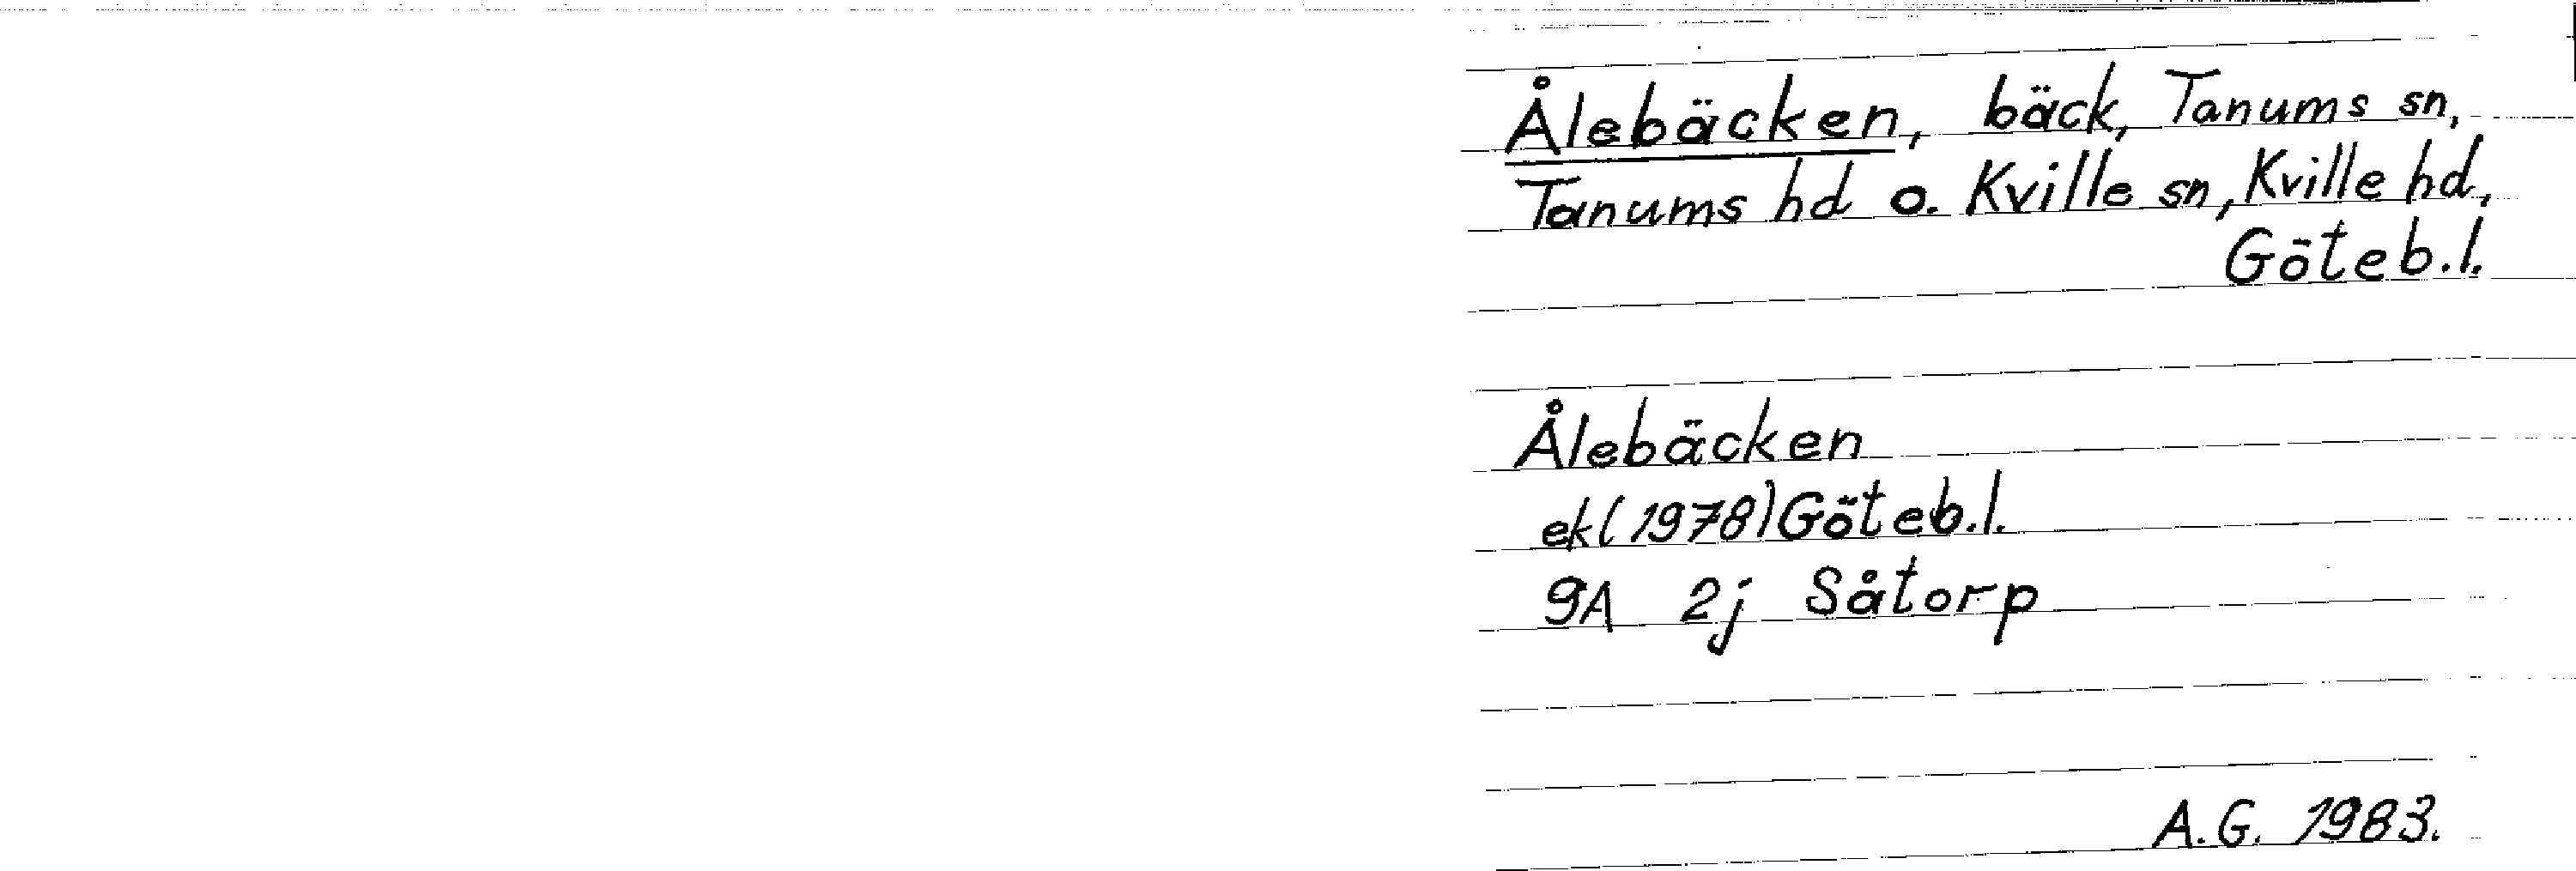 Ålebäcken, bäck, Tanums sn,
Tanums hd o. Kville sn, Kville hd,
Göteb.l.
Ålebäcken
ek(1978)Göteb.l.
9A 2j Såtorp
A.G. 1983.